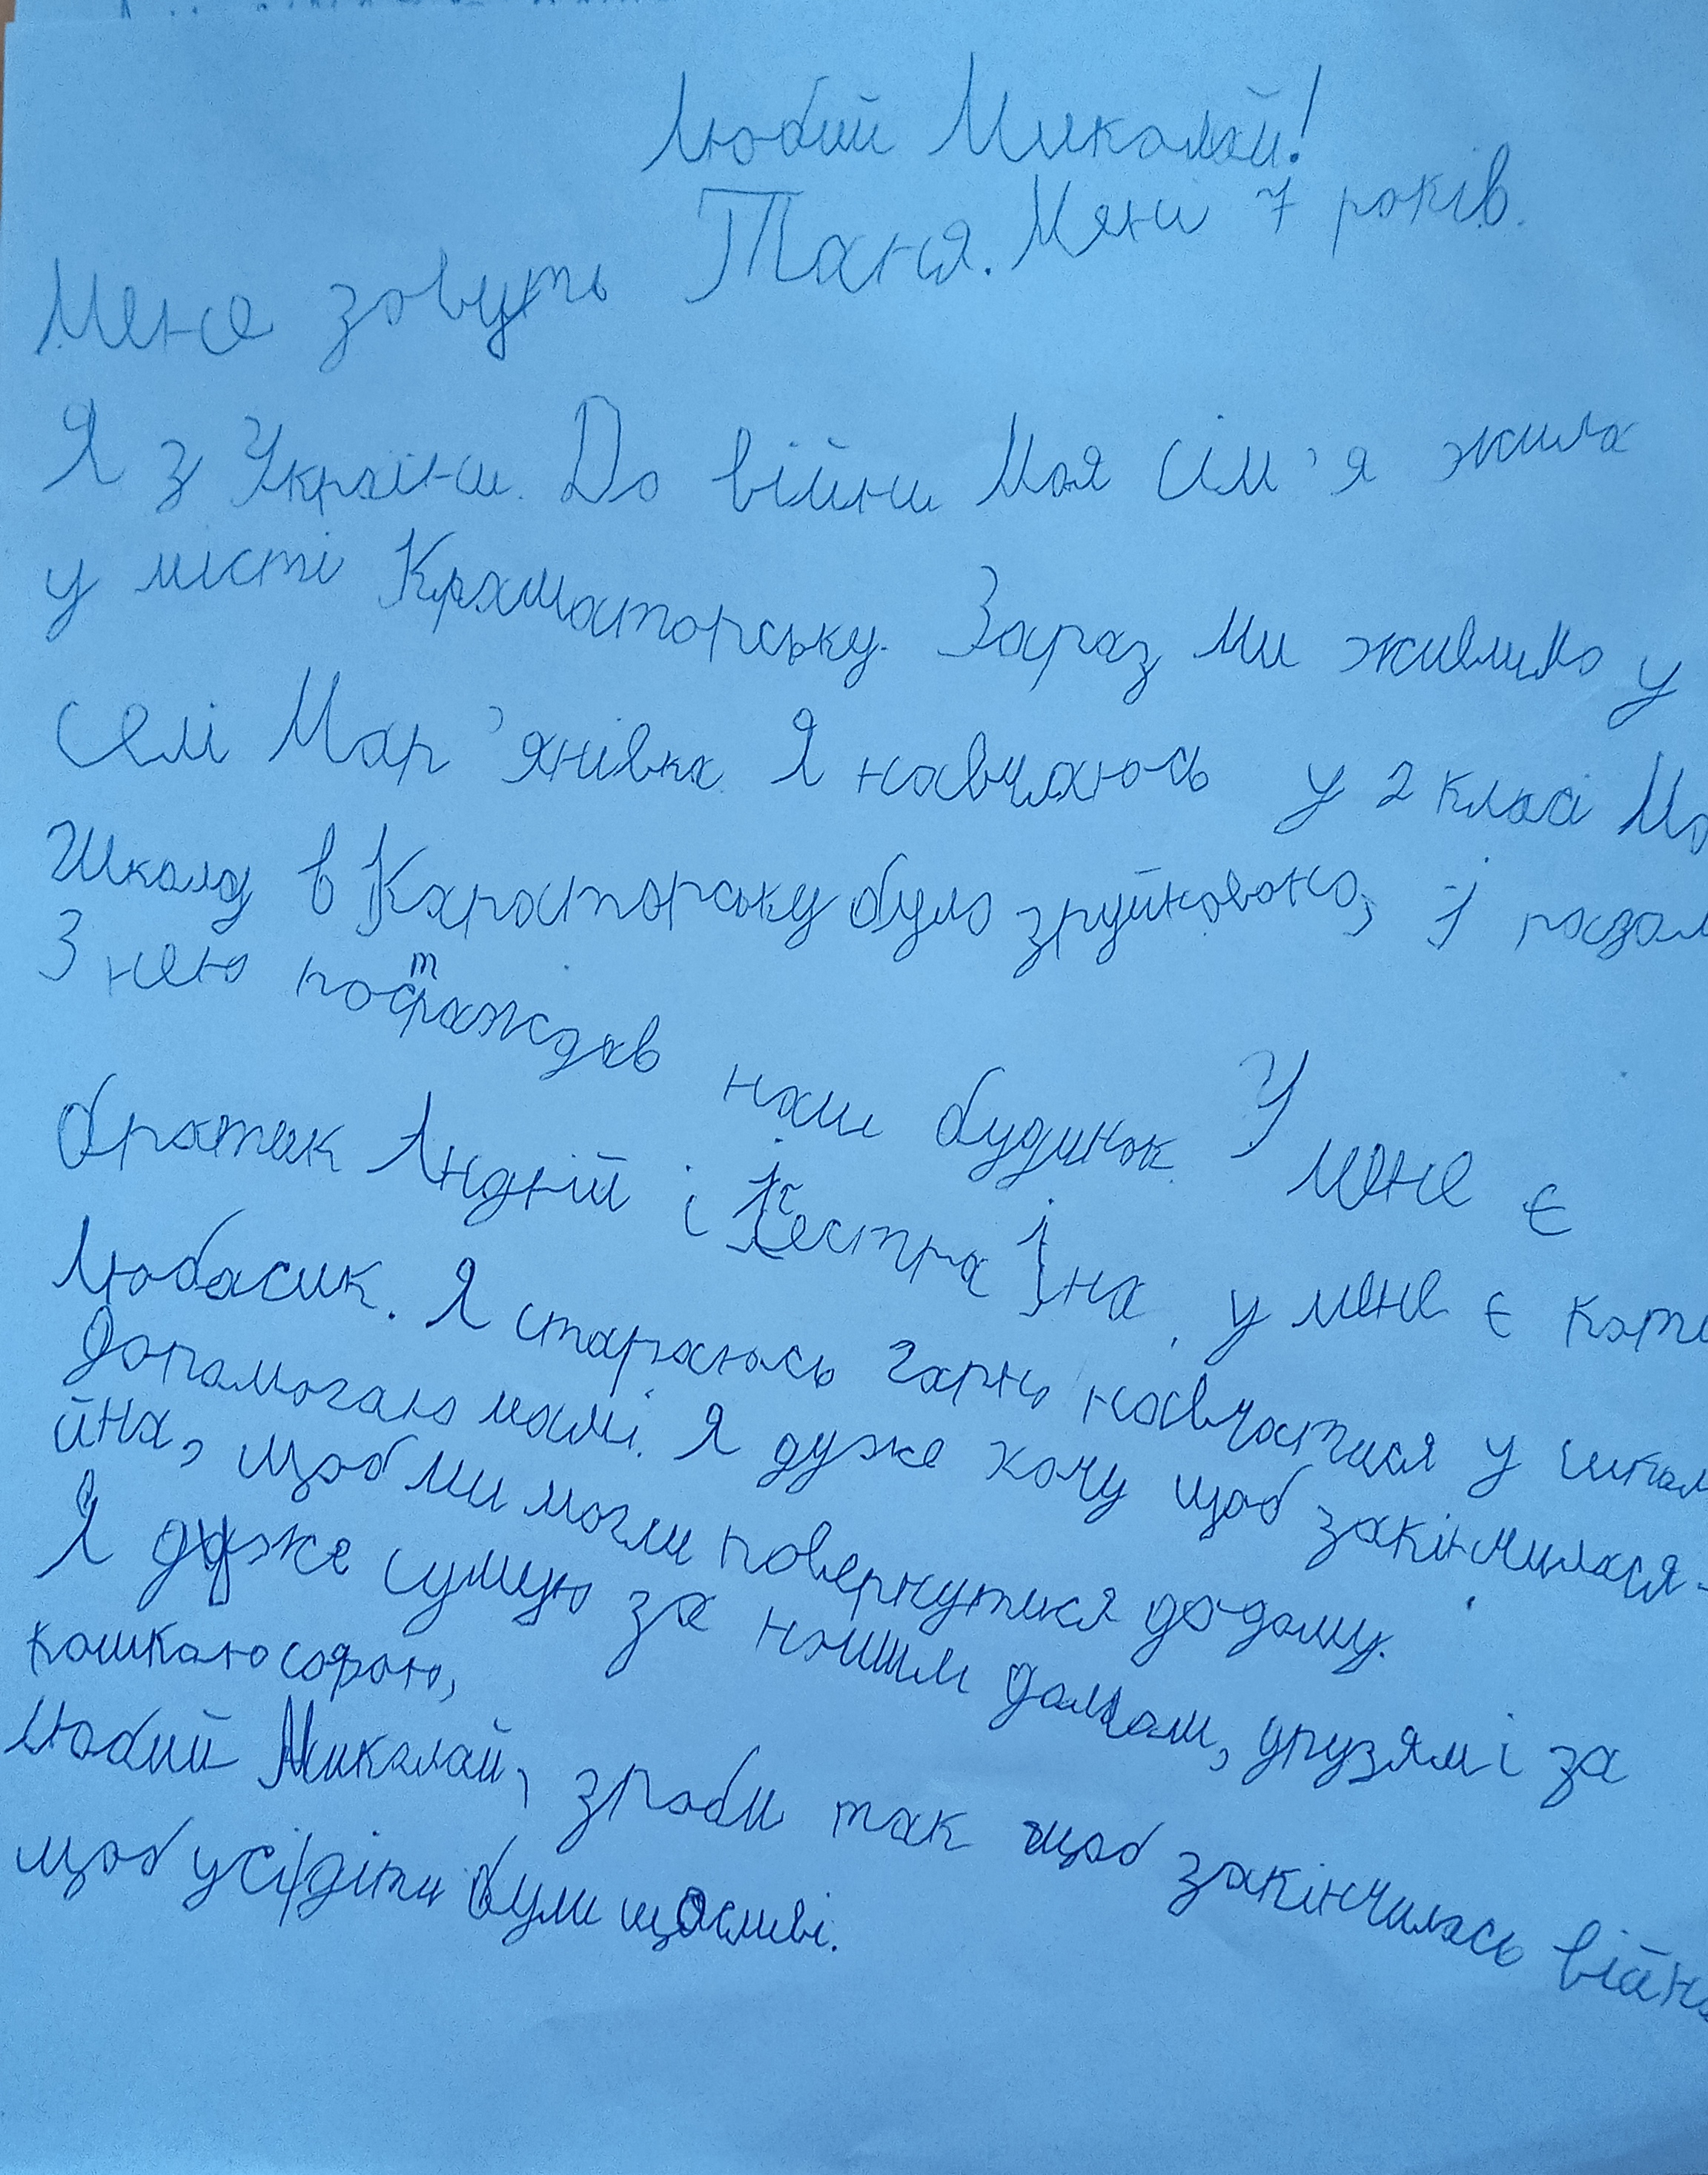 Любий Миколай!
Мене звуть Таня. Мені 7 років.
Я з України. До війни Моя сім'я жила
у місті Краматорську. Зараз ми живлимо у
селі Мар'янівка Я навчаюсь у 2 класі Мо
Школу в Караторську було зруйновано, і разом
З нею постраждав наш будинок У мене є
братик Андрій і Сестра Іна, у мене є коти
Любасик. Я стараюсь гарно навчатися у школ
допомогаю мамі. Я дуже хочу щоб закінчилася-
йна, щоб ми могли повернутися до-дому.
Я дуже сумую за нашим домом, друзям і за
кошкою сорою,
Любий Миколай, зроби так щоб закінчилась війна
щоб усі діти були щасливі.